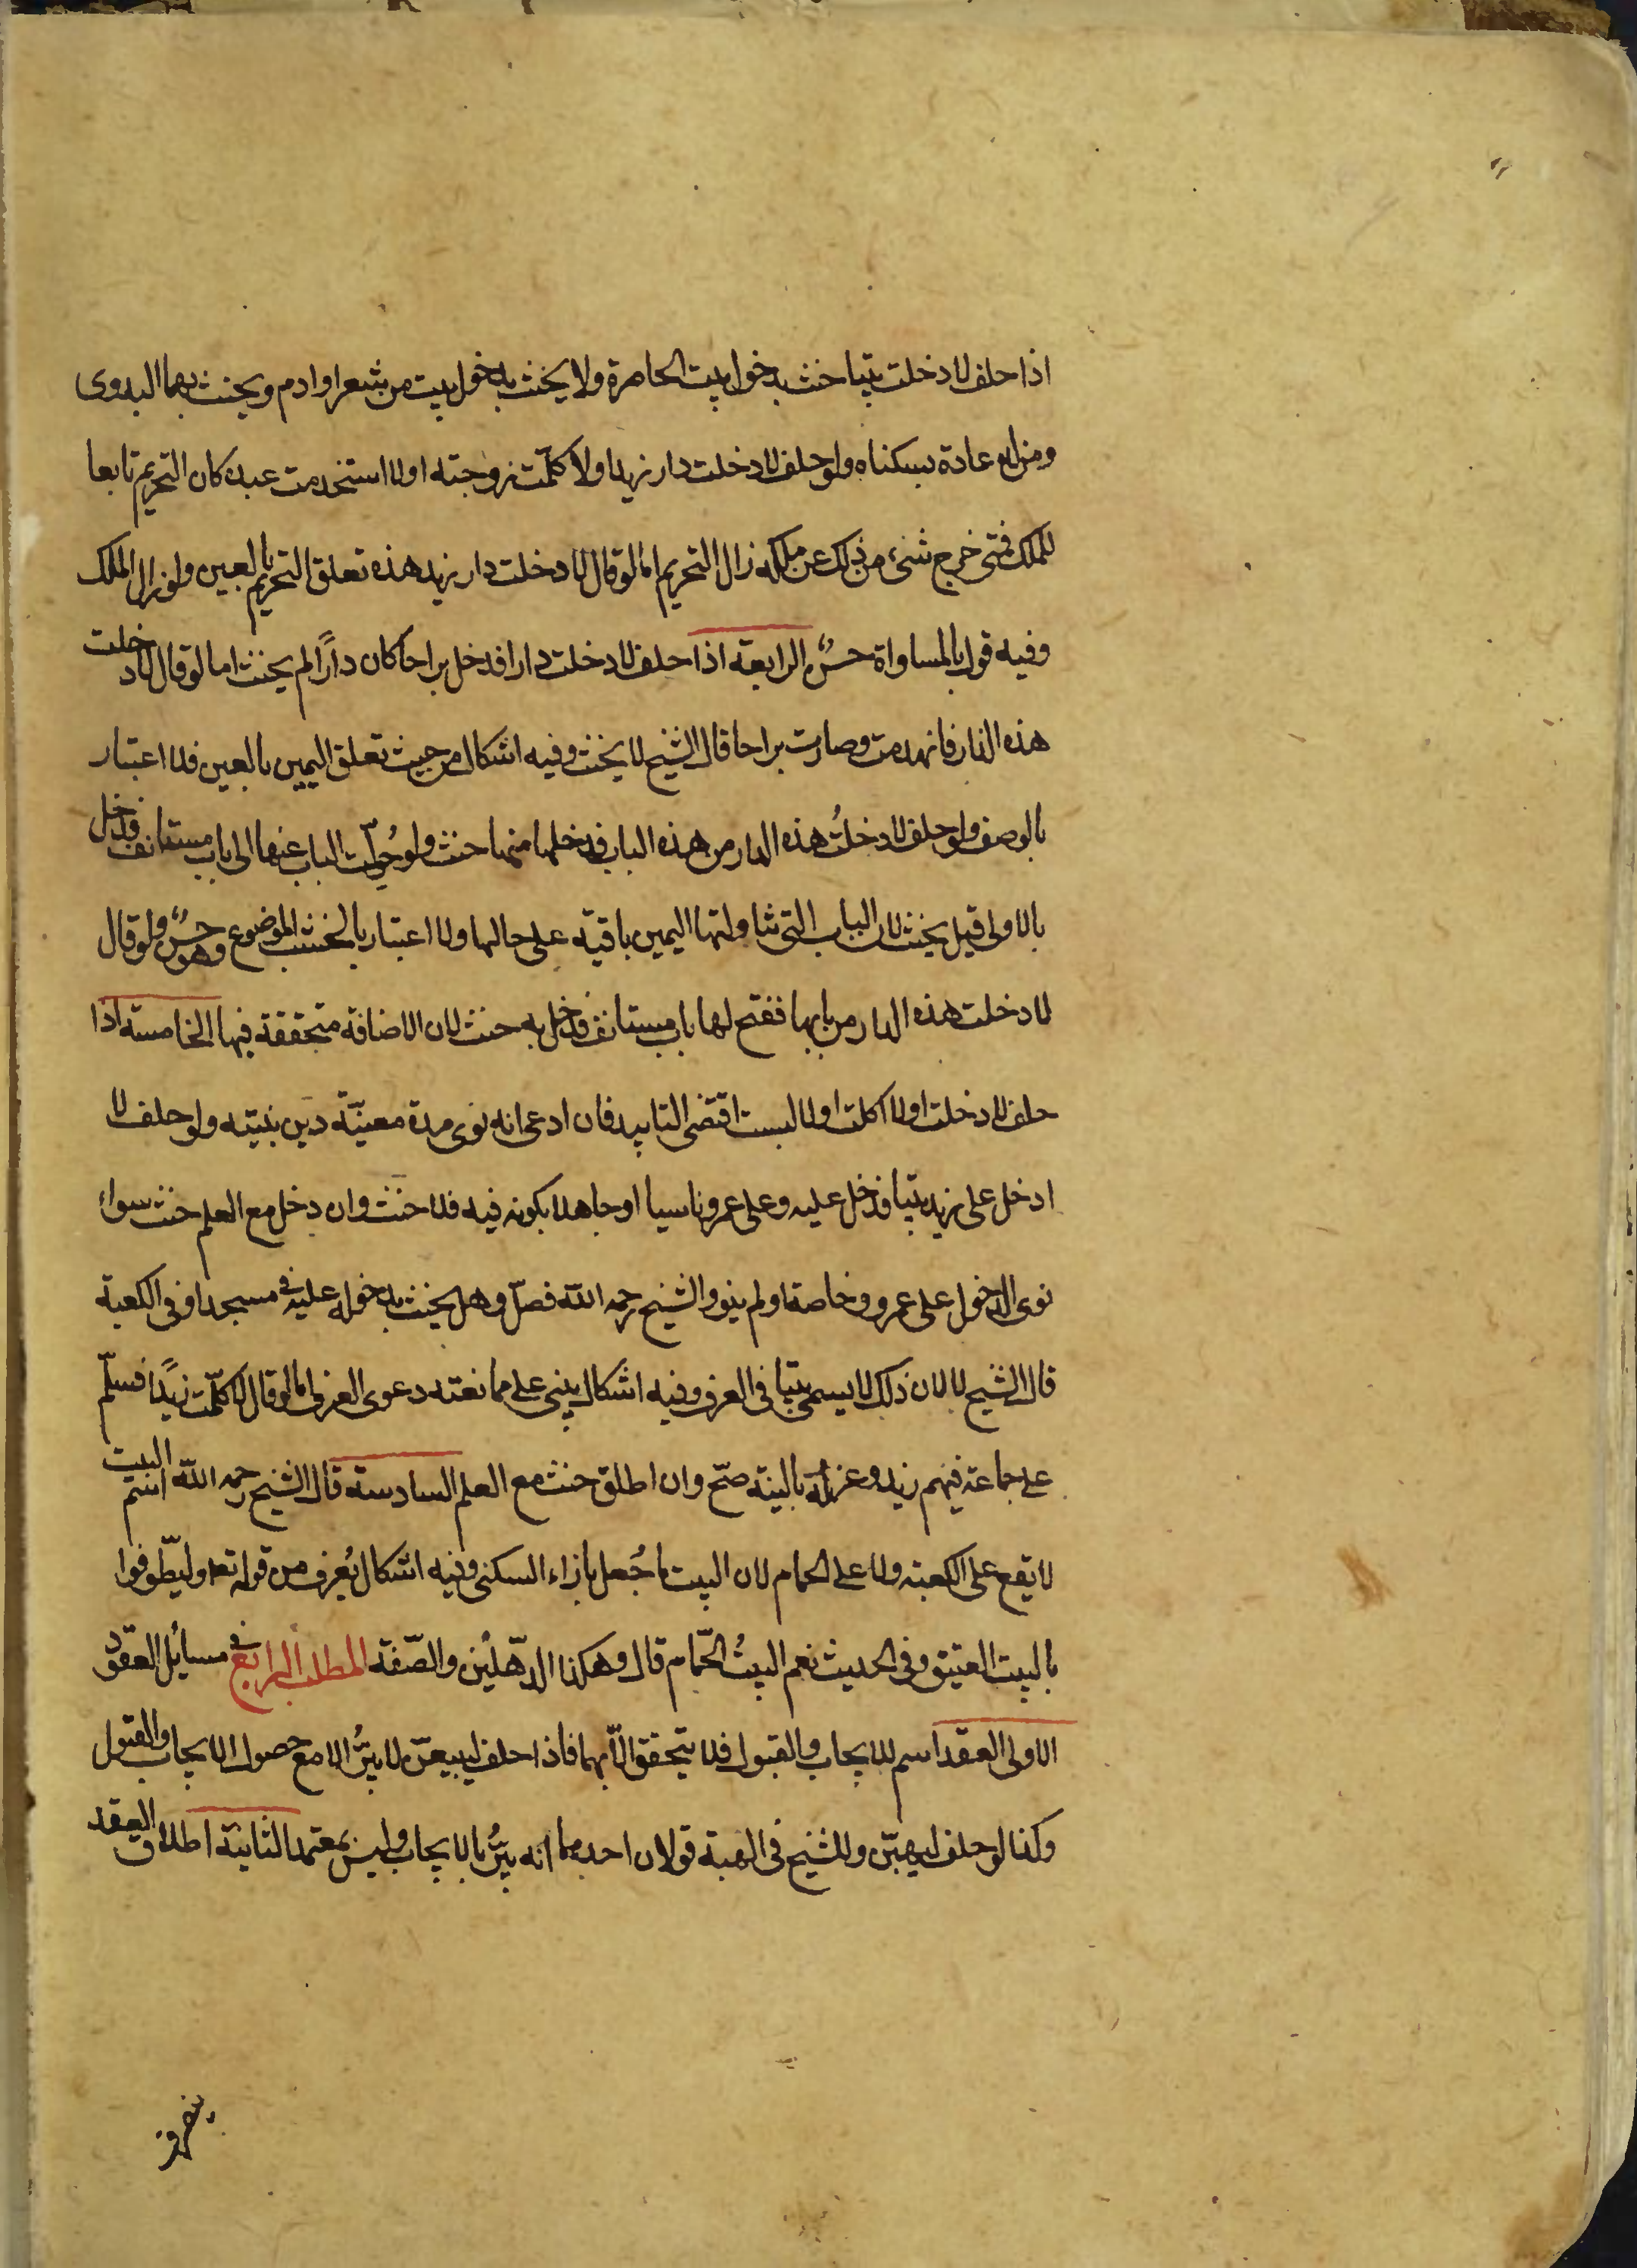 اذا حلف لا دخلت بيتا حنث بدخول بيت الحاضرة ولا يحنث بدخول بيت من شعر او ادم ويحنث بهما البدوى
ومن له عادة بسكناه ولو حلف لا دخلت دار زيد او لا كلّمت زوجته او لا استخدمت عبده كان التحريم تابعا
للملك فمتى خرج شىء من ذلك عن ملكه زال التحريم امّا لو قال لا دخلت دار زيد هذه تعلق التحريم بالعين ولو زال الملك
وفيه قول بالمساواة حسنٌ الرابعة اذا حلف لا دخلت دارا فدخل براحا كان دارًا لم يحنث اما لو قال لا دخلت
هذه الدار فانهدمت وصارت براحا قال الشيخ لا يحنث وفيه اشكال من حيث تعلق اليمين بالعين فلا اعتبار
بالوصف ولو حلف لا دخلتُ هذه الدار من هذه الباب فدخلها منها حنث ولو حُوّلت الباب عنها الى باب مستانف فدخل
بالاولى قيل يحنث لان الباب التى تناولتها اليمين باقية على حالها ولا اعتبار بالخشب الموضوع وهو حسنٌ ولو قال
لا دخلت هذه الدار من بابها ففتح لها باب مستانف فدخل به حنث لان الاضافة متحققة فيها الخامسة اذا
حلف لا دخلت او لا اكلت او لا لبست اقتضى التابيد فان ادعى انه نوى مدة معيّنة دين بنيته ولو حلف لا
ادخل على زيد بيتا فدخل عليه وعلى عمرو ناسيا او جاهلا بكونه فيه فلا حنث وان دخل مع العلم حنث سواء
نوى الدخول على عمرو خاصة او لم ينو والشيخ رحمه الله فصّل وهل يحنث بدخوله عليه فى مسجد او فى الكعبة
قال الشيخ لا لان ذلك لا يسمى بيتا فى العرف وفيه اشكال يبنى على ممانعته دعوى العرف امّا لو قال لا كلّمت زيدًا فسلّم
على جماعة فيهم زيد وعزله بالنيّة صحّ وان اطلق حنث مع العلم السادسة قال الشيخ رحمه الله اسم البيت
لا يقع على الكعبة ولا على الحمام لان البيت ما جُعل بازاء السكنى وفيه اشكال يُعرف من قوله تعه وليطّوفوا
بالبيت العتيق وفى الحديث نعم البيتُ الحمّام قال وهكذا الدّهليز والصّفّة المطلب الرابع فى مسايل العقود
الاولى العقد اسم للايجاب والقبول فلا يتحقق الّا بهما فاذا حلف ليبيعنّ لا يبرُّ الا مع حصول الايجاب والقبول
وكذا لو حلف ليهبنّ وللشيخ فى الهبة قولان احدهما انه يبرُّ بالايجاب وليس بمعتمد الثانية اطلاق العقد
ينصرف